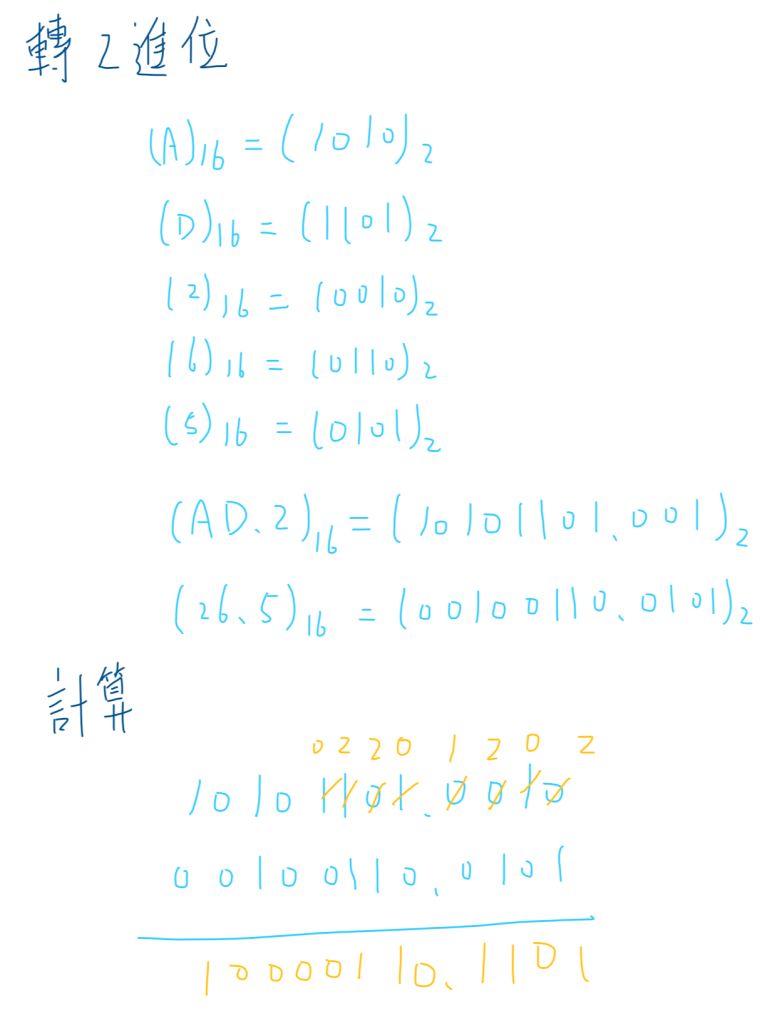 轉2進位
(A)16 = (1010)2
(D)16 = (1101)2
(2)16 = (0010)2
(6)16 = (0110)2
(5)16 = (0101)2
(AD.2)16 = (10101101.001)2
(26.5)16 = (00100110.0101)2
計算
0 2 2 0 1 2 0 2
10101101.0010
00100110.0101
10000110.1101